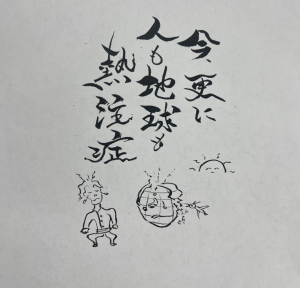 今、更に
人も地球も
熱注症